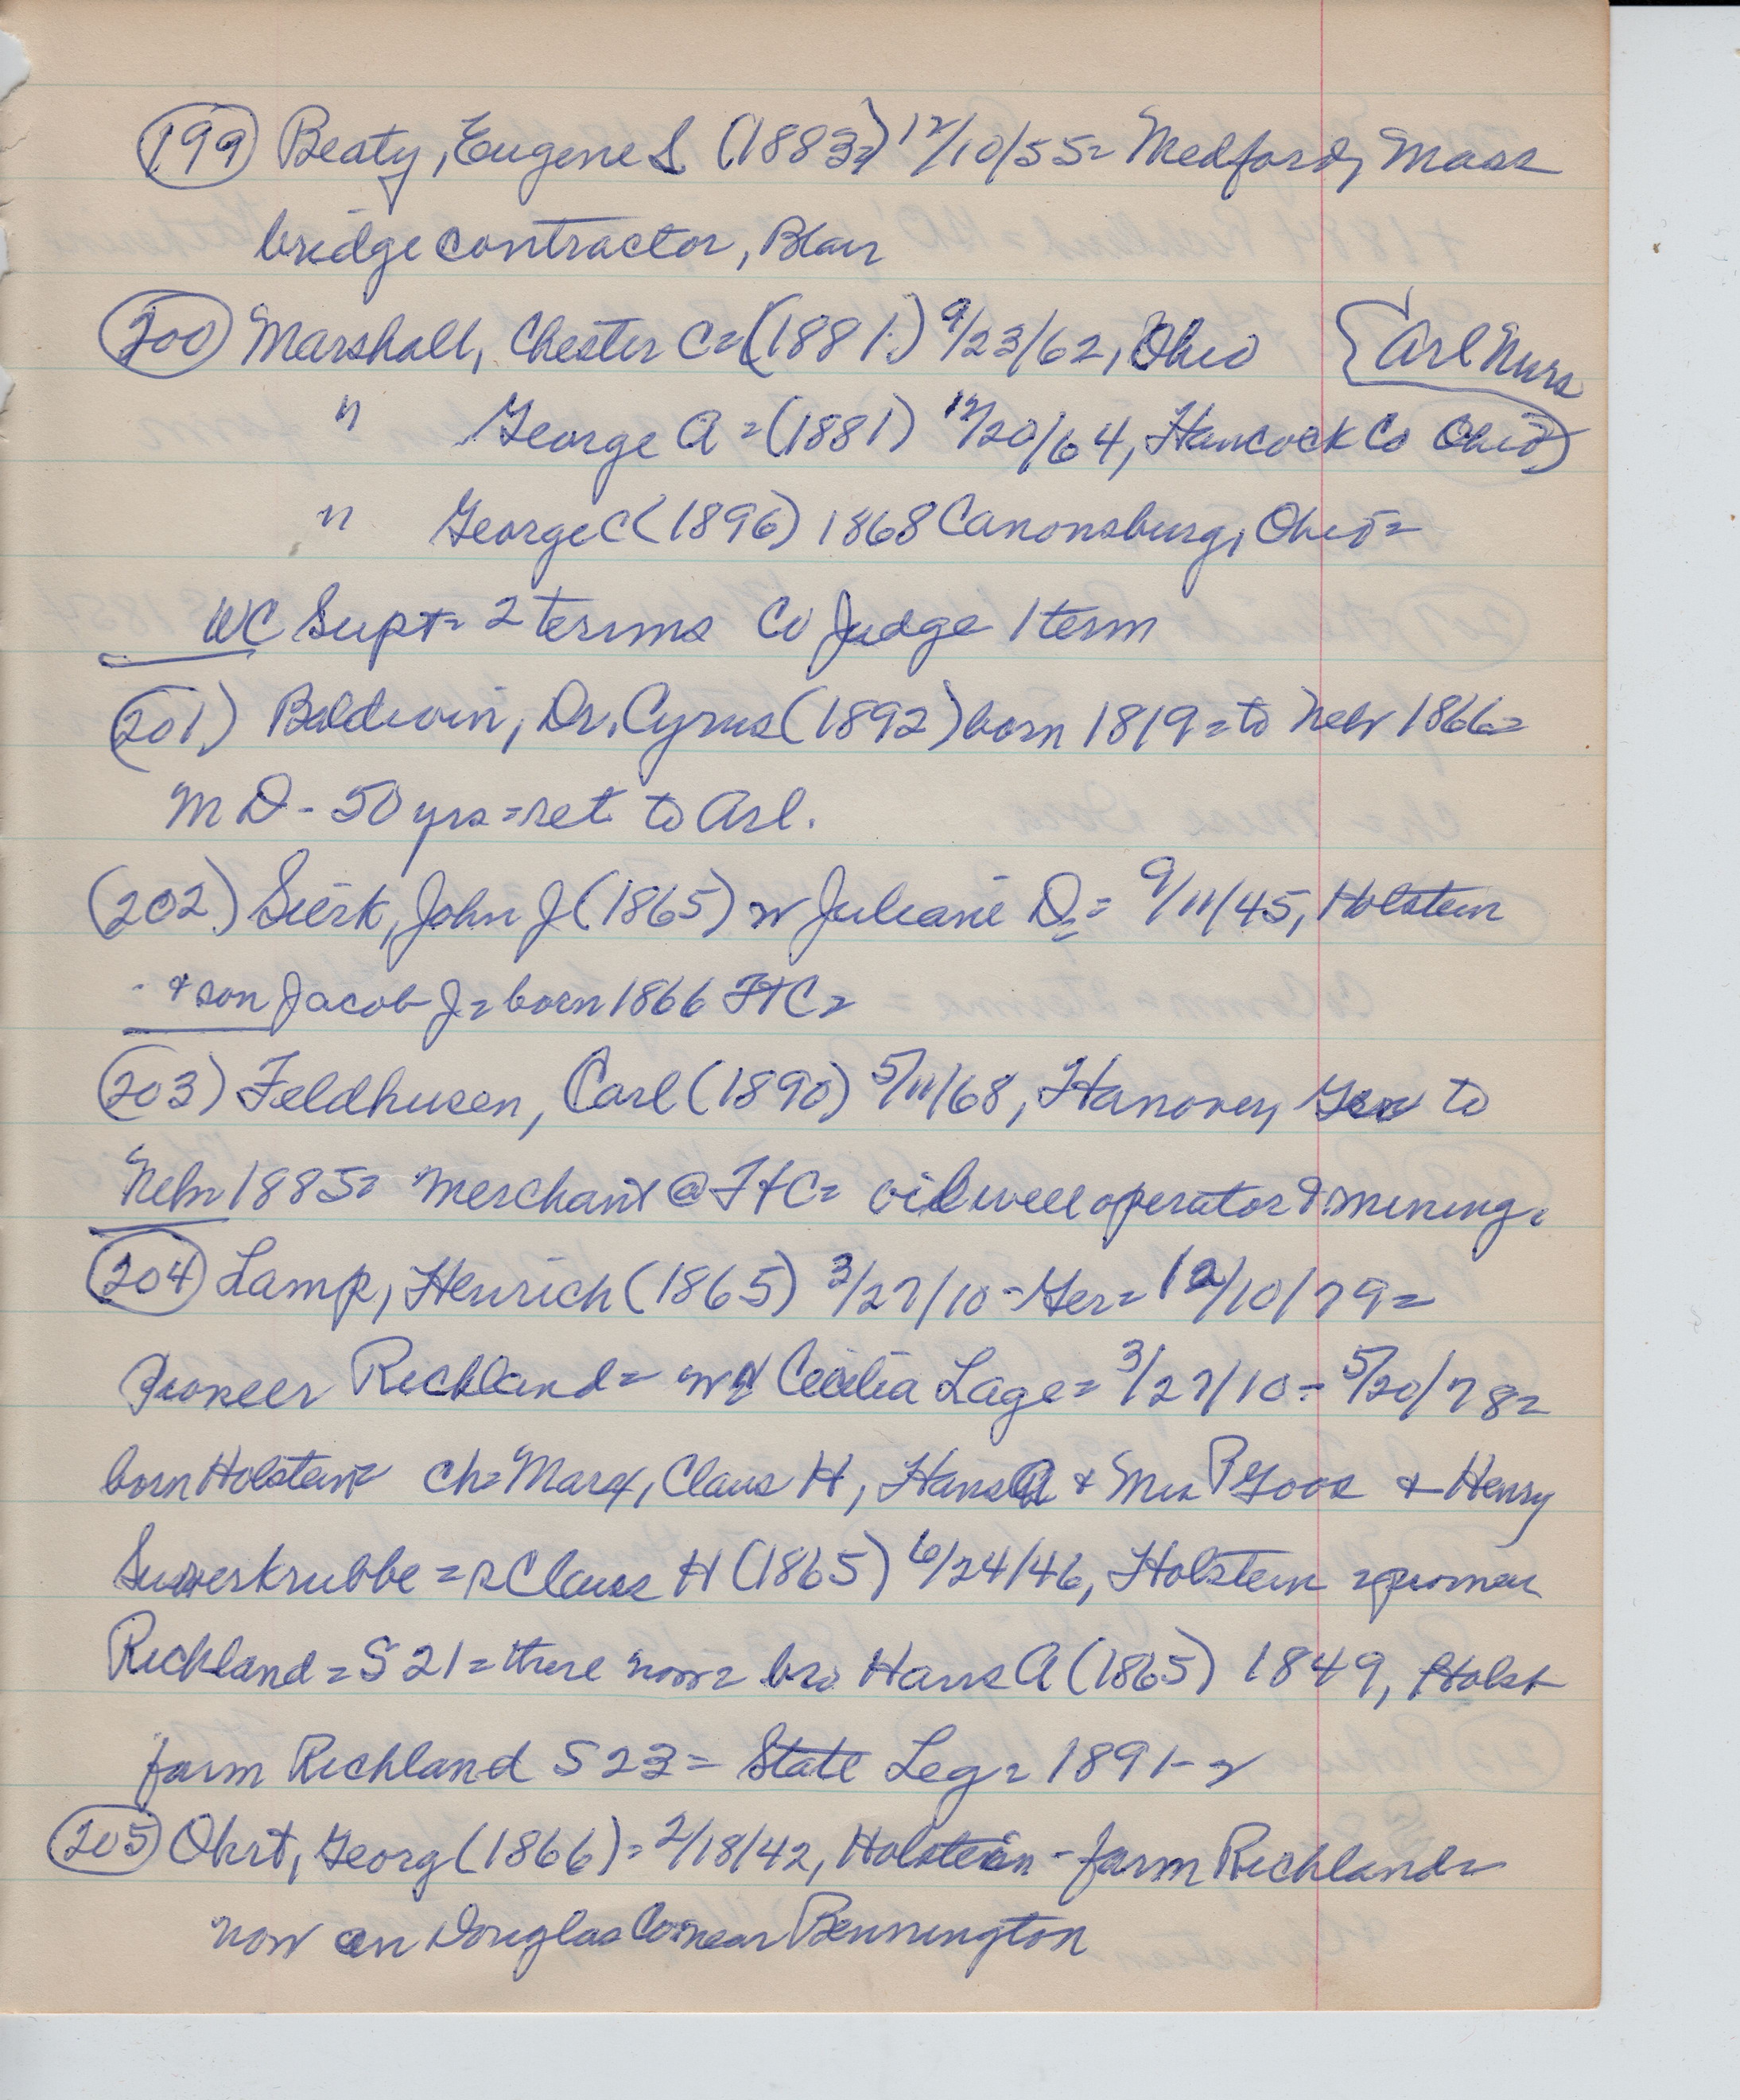 (199) Beaty, Eugene S (1883=) 12/10/55= Medford, Mass
bridge contractor, Blair
(200) Marshall, Chester C=(1881.) 9/23/62, Ohio {Arl Nurs
" George A=(1881) 12/20/64, Hancock Co Ohio)
" George C (1896) 1868 Canonsburg, Ohio=
WC Supt= 2 terms Co Judge 1 term
(201.) Baldwin, Dr. Cyrus (1892) born 1819= to Neb 1866=
MD - 50 yrs = ret to Arl.
(202.) Sierk, John J (1865) w Juliane D= 9/11/45, Holstein
& son Jacob J= born 1866 FtC=
(203) Feldhusen, Carl (1890) 5/11/68, Hanover, Ger to
Nebr 1885= merchant @ FtC= oil well operator & mining.
(204) Lamp, Henrich (1865) 3/27/10 - Ger= 12/10/79=
Pioneer Richland= w Cecilia Lage= 3/27/10 - 5/20/78=
born Holstein= ch= Marx, Claus H, Hans A & Mrs P Goos & Henry
Suverkrubbe = Claus H (1865) 6/24/46, Holstein = pioneer
Richland = S 21 = there now= bro Hans A (1865) 1849, Holst
farm Richland S 23 = State Leg= 1891-2
(205) Ohrt, Georg (1866)= 2/18/42, Holstein - farm Richland=
now on Douglas Co near Bennington